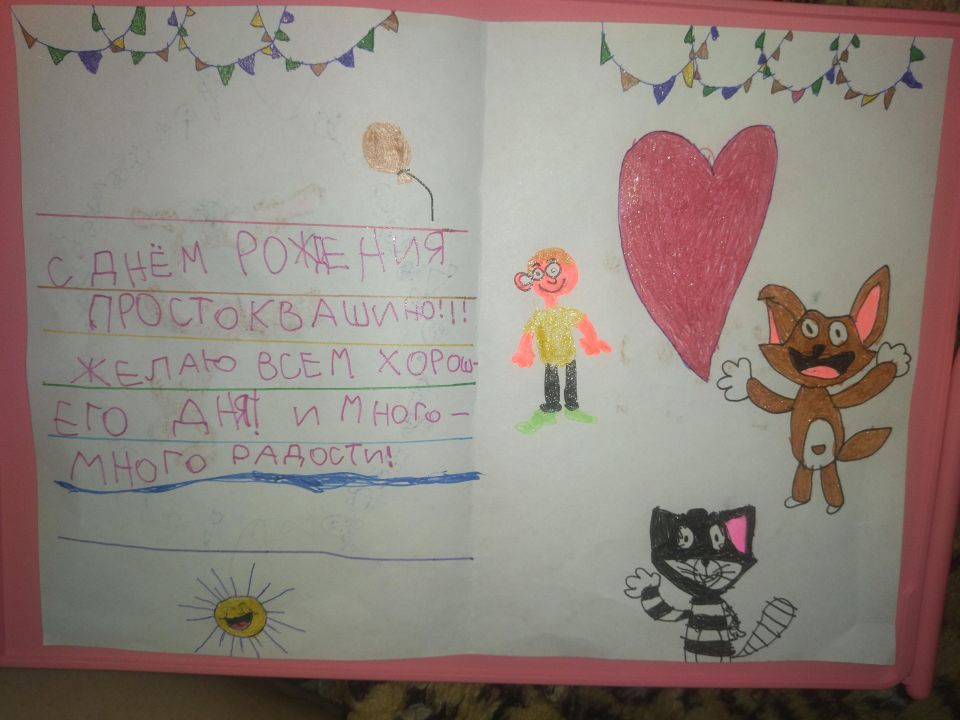 С ДНЁМ РОЖДЕНИЯ
ПРОСТОКВАШИНО!!!
ЖЕЛАЮ ВСЕМ ХОРОШ-
ЕГО ДНЯ! И МНОГО-
МНОГО РАДОСТИ!